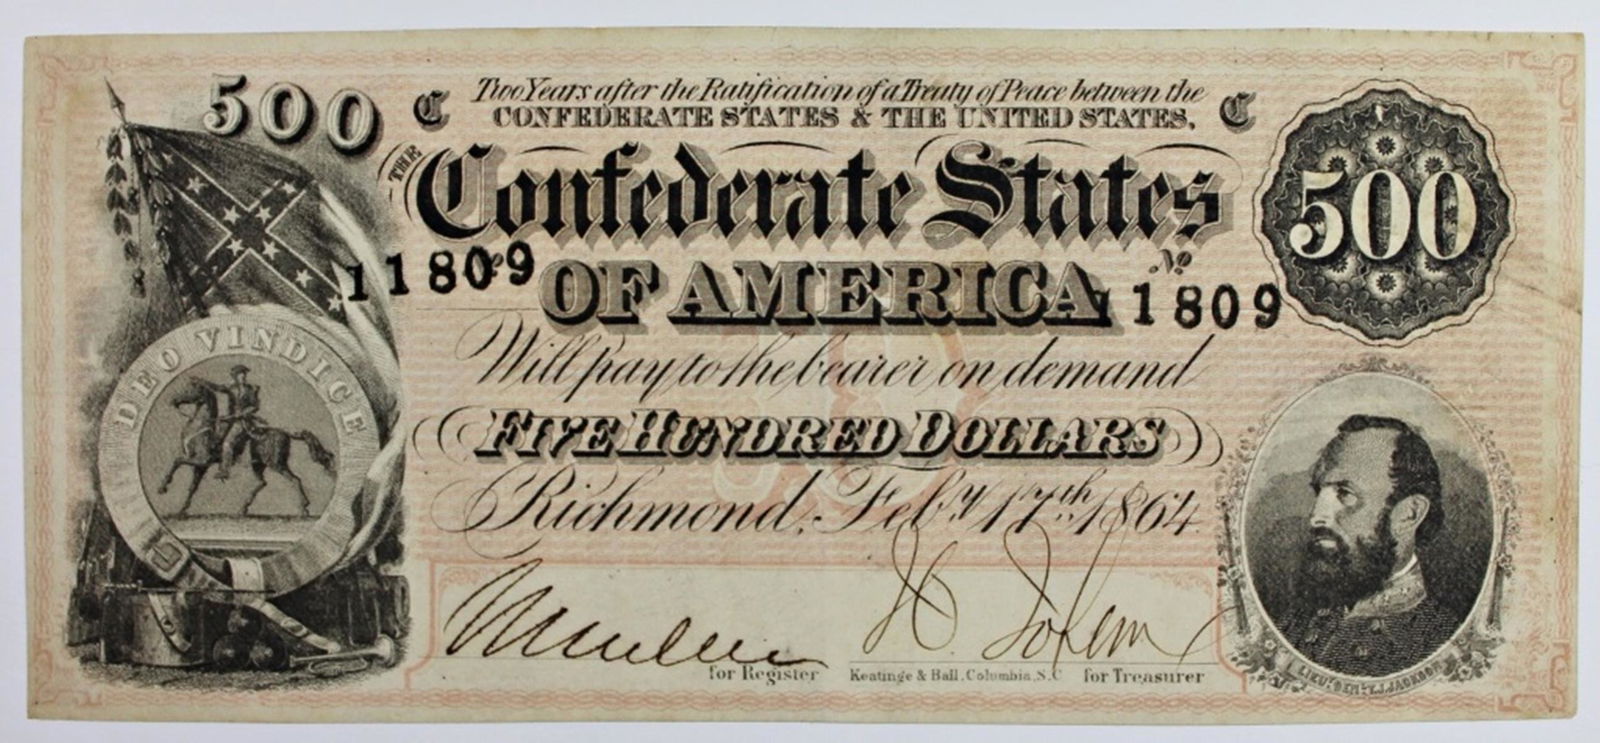 500
C Two Years after the Ratification of a Treaty of Peace between the C
CONFEDERATE STATES & THE UNITED STATES,
500
THE Confederate States
No 11809 OF AMERICA No 11809
Will pay to the bearer on demand
FIVE HUNDRED DOLLARS
Richmond, Feby. 17th. 1864.
DEO VINDICE
for Register
Keatinge & Ball, Columbia, S.C
for Treasurer
LIEUT. GENL. T.J. JACKSON